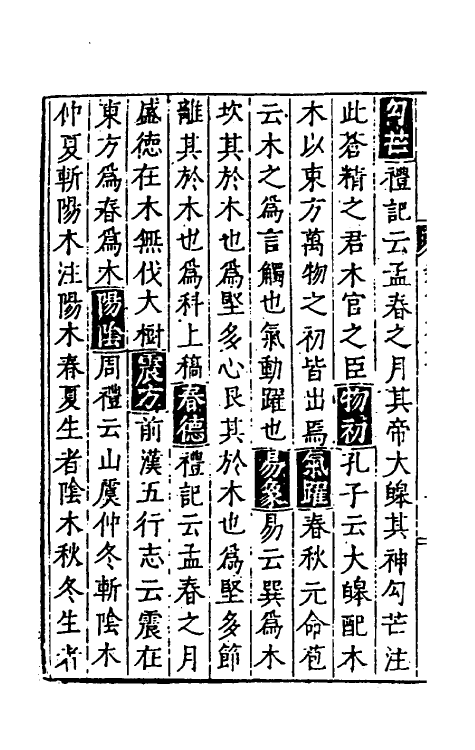 勾芒禮記云孟春之月其帝大皥其神勾芒注
此蒼精之君木官之臣物初孔子云大皥配木
木以東方萬物之初皆出焉氣躍春秋元命苞
云木之為言觸也氣動躍也易象易云巽為木
坎其於木也為堅多心艮其於木也為堅多節
離其於木也為科上稿春德禮記云孟春之月
盛德在木無伐大樹震方前漢五行志云震在
東方為春為木陽陰周禮云山虞仲冬斬陰木
仲夏斬陽木注陽木春夏生者陰木秋冬生者